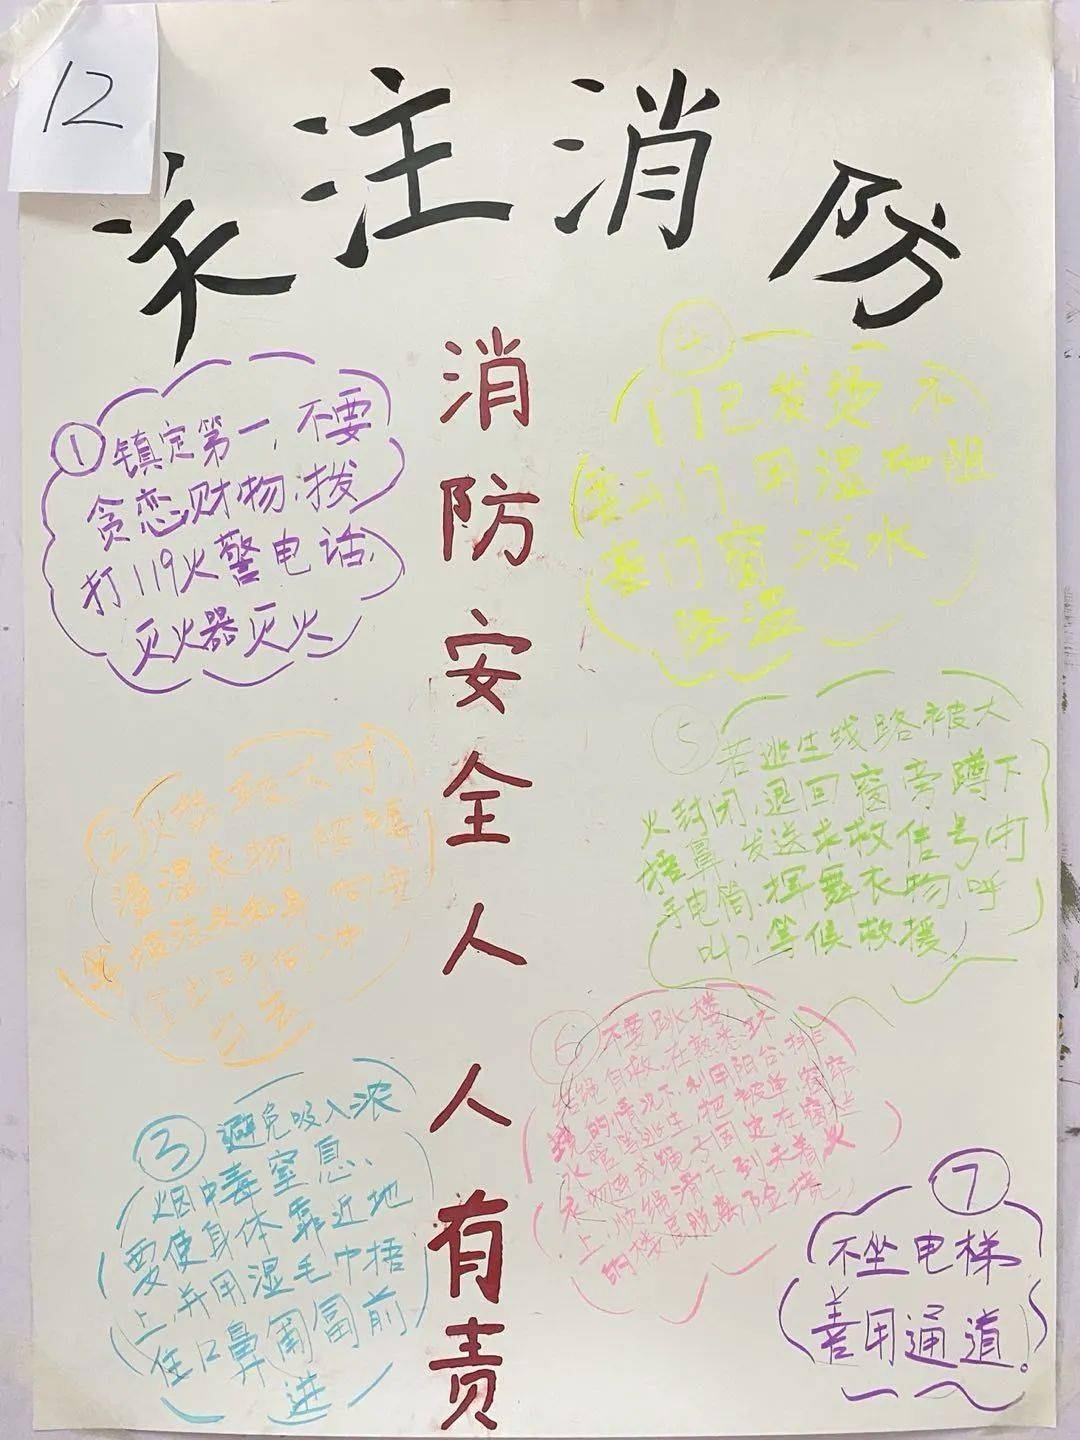 12
关注消防
消防安全人人有责
① 镇定第一,不要
贪恋财物,拨
打119火警电话,
灭火器灭火
② 火势
湿衣物
向安
全出口方向冲
③ 避免吸入浓
烟中毒窒息、
要使身体靠近地
上,并用湿毛巾捂
住口鼻匍匐前
进
④
门已发烫 不
要开门 用湿布阻
塞门窗 泼水
降温
⑤
若逃生线路被大
火封闭,退回窗旁蹲下
捂鼻,发送求救信号(打
手电筒、挥舞衣物、呼
叫),等候救援!
⑥ 不要跳楼
结绳自救,在熟悉环
境的情况下,利用阳台、排
水管等逃生 把被单 窗帘
衣物连成绳子固定在窗栏
上,顺绳滑下到未着火
的楼层脱离险境
⑦
不坐电梯
善用通道。